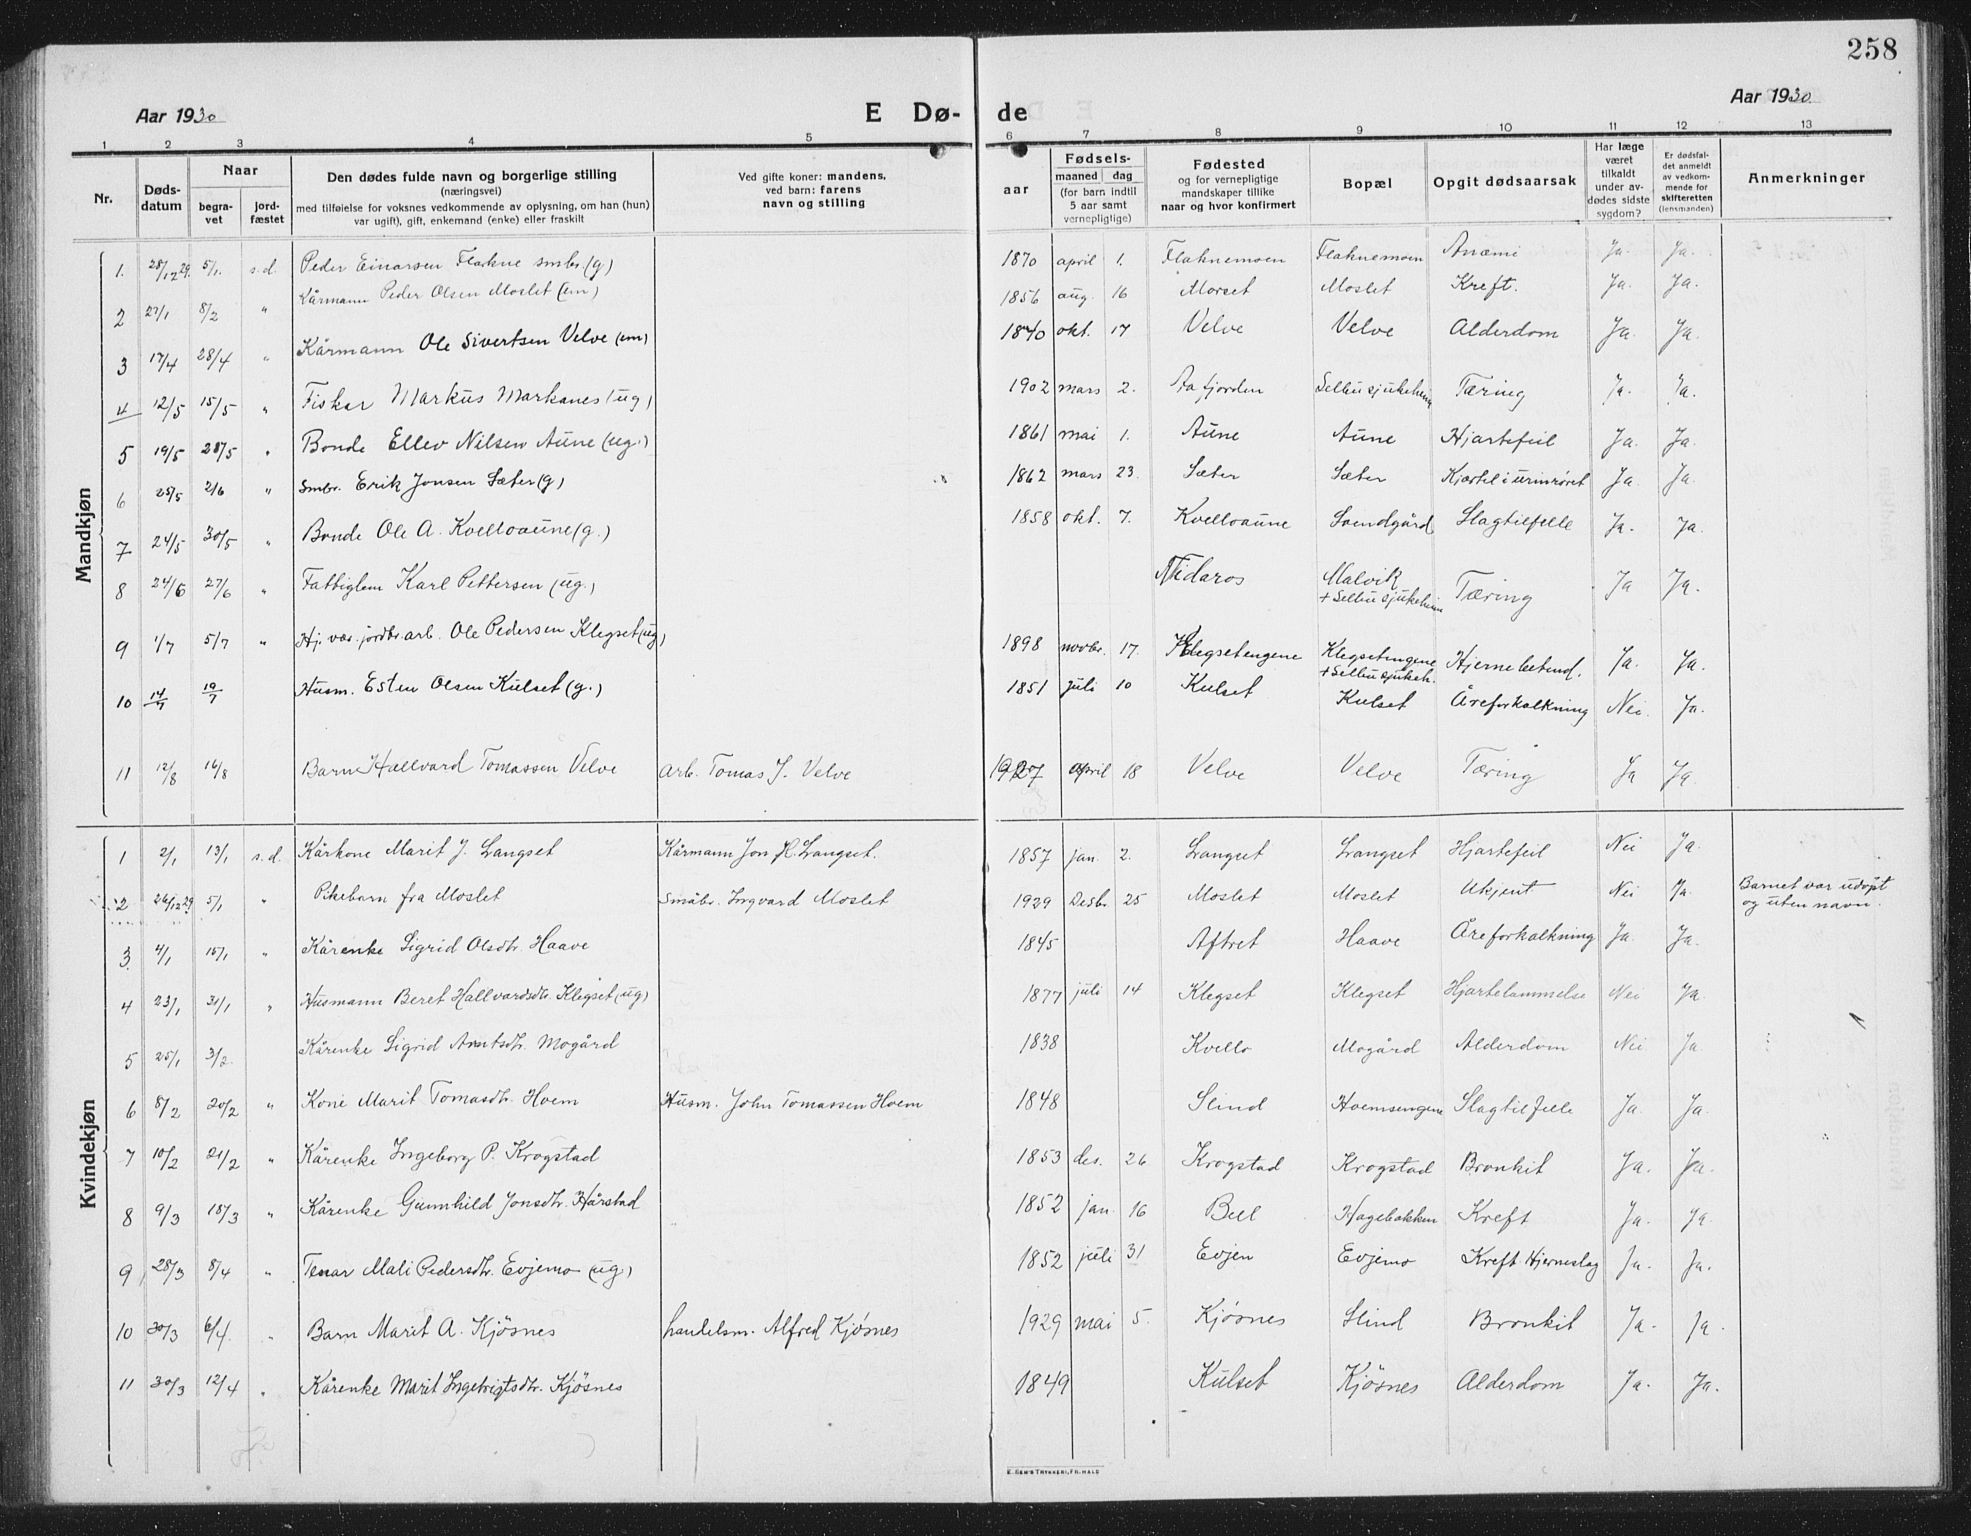 258
Aar 1930
E Dø-
de
Aar 1930
1 2 3 4 5 6 7 8 9 10 11 12 13
Nr.
Døds-
datum
Naar
begra-
vet
jord-
fæstet
Den dødes fulde navn og borgerlige stilling
(næringsvei)
med tilføielse for voksnes vedkommende av oplysning, om han (hun)
var ugift), gift, enkemand (enke) eller fraskilt
Ved gifte koner: mandens,
ved barn: farens
navn og stilling
aar
Fødsels-
maaned dag
(for barn indtil
5 aar samt
vernepligtige)
Fødested
og for vernepligtige
mandskaper tillike
naar og hvor konfirmert
Bopæl
Opgit dødsaarsak
Har læge
været
tilkaldt
under av-
dødes sidste
sygdom?
Er dødsfal-
det anmeldt
av vedkom-
mende for
skifteretten
(lensmanden)
Anmerkninger
Mandkjøn
1. 28/12 29. 5/1. s.d. Peder Einarsen Flakne smbr. (g) 1870 april 1. Flaknemoen Flaknemoen Anæmi Ja. Ja.
2 27/1 8/2 " Kårmann Peder Olsen Moslet (em) 1856 aug. 16 Morset Moslet Kreft. Ja. Ja.
3 17/4 28/4 " Kårmann Ole Sivertsen Velve (em) 1840 okt. 17 Velve Velve Alderdom Ja. Ja.
4 12/5 15/5 " Fisker Markus Markanes (ug) 1902 mars 2. Aafjorden Selbu sjukeheim Tæring Ja. Ja.
5 19/5 28/5 " Bonde Ellev Nilsen Aune (ug.) 1861 mai 1. Aune Aune Hjartefeil Ja. Ja.
6 25/5 2/6 " Smbr. Erik Jonsen Sæter (g) 1862 mars 23. Sæter Sæter Kjærtel i urinrøret Ja. Ja.
7 24/5 30/5 " Bonde Ole A. Kvelloaune (g.) 1858 okt. 7. Kvelloaune Svendgård Slagtilfelle Ja. Ja.
8 24/6 27/6 " Fattiglem Karl Pettersen (ug.) Nidaros Malvik
+ Selbu sjukeheim Tæring Ja Ja.
9 1/7 5/7 " Hj. vær. jordbr. arb. Ole Pedersen Klegset (ug) 1898 novbr. 17. Klegsetengene Klegsetengene
+ Selbu sjukeh. Hjernebetend. Ja. Ja.
10 14/7 19/7 Husm. Esten Olsen Kulset (g.) 1851 juli 10 Kulset Kulset Åreforkalkning Nei. Ja.
11 12/8 16/8 Barn Hallvard Tomassen Velve Arb. Tomas J. Velve 1927 april 18 Velve Velve Tæring Ja Ja
Kvindekjøn
1 2/1 13/1 s.d. Kårkone Marit J. Langset Kårmann Jon H. Langset. 1857 jan. 2. Langset Langset Hjartefeil Nei Ja
2 26/12 29. 5/1 " Pikebarn fra Moslet Småbr. Ingvard Moslet 1929 Desbr. 25 Moslet Moslet Ukjent Nei Ja. Barnet var udøpt
og uten navn.
3. 4/1 15/1 " Kårenke Sigrid Olsdtr. Haave 1845 Aftret Haave Åreforkalkning Ja. Ja.
4 23/1 31/1 " Husmann Beret Hallvardsdtr. Klegset (ug) 1877 juli 14 Klegset Klegset Hjartelammelse Nei Ja.
5 25/1 3/2. Kårenke Sigrid Arntsdtr. Mogård 1838 Kvello Mogård Alderdom Nei Ja.
6 8/2 20/2 " Kone Marit Tomasdtr. Hoem Husm. John Tomassen Hoem 1848 Slind Hoemsengene Slagtilfelle Ja. Ja.
7 10/2 21/2 " Kårenke Ingeborg P. Krogstad 1853 des. 26 Krogstad Krogstad Bronkit Ja. Ja.
8 9/3 18/3 " Kårenke Gunnhild Jonsdtr. Hårstad 1852 jan. 16 Bell Hagebakken Kreft Ja. Ja.
9 28/3 8/4 " Tenar Mali Pedersdtr. Evjemo (ug) 1852 juli 31 Evjen Evjemo Kreft Hjerneslag Ja. Ja.
10 30/3 6/4. " Barn Marit A. Kjøsnes handelsm. Alfred Kjøsnes 1929 mai 5. Kjøsnes Slind Bronkit Ja. Ja.
11 30/3 12/4 " Kårenke Marit Ingebrigtsdtr. Kjøsnes 1849 Kulset Kjøsnes Alderdom Ja. Ja.
E. SEM'S TRYKKERI, FR.HALD